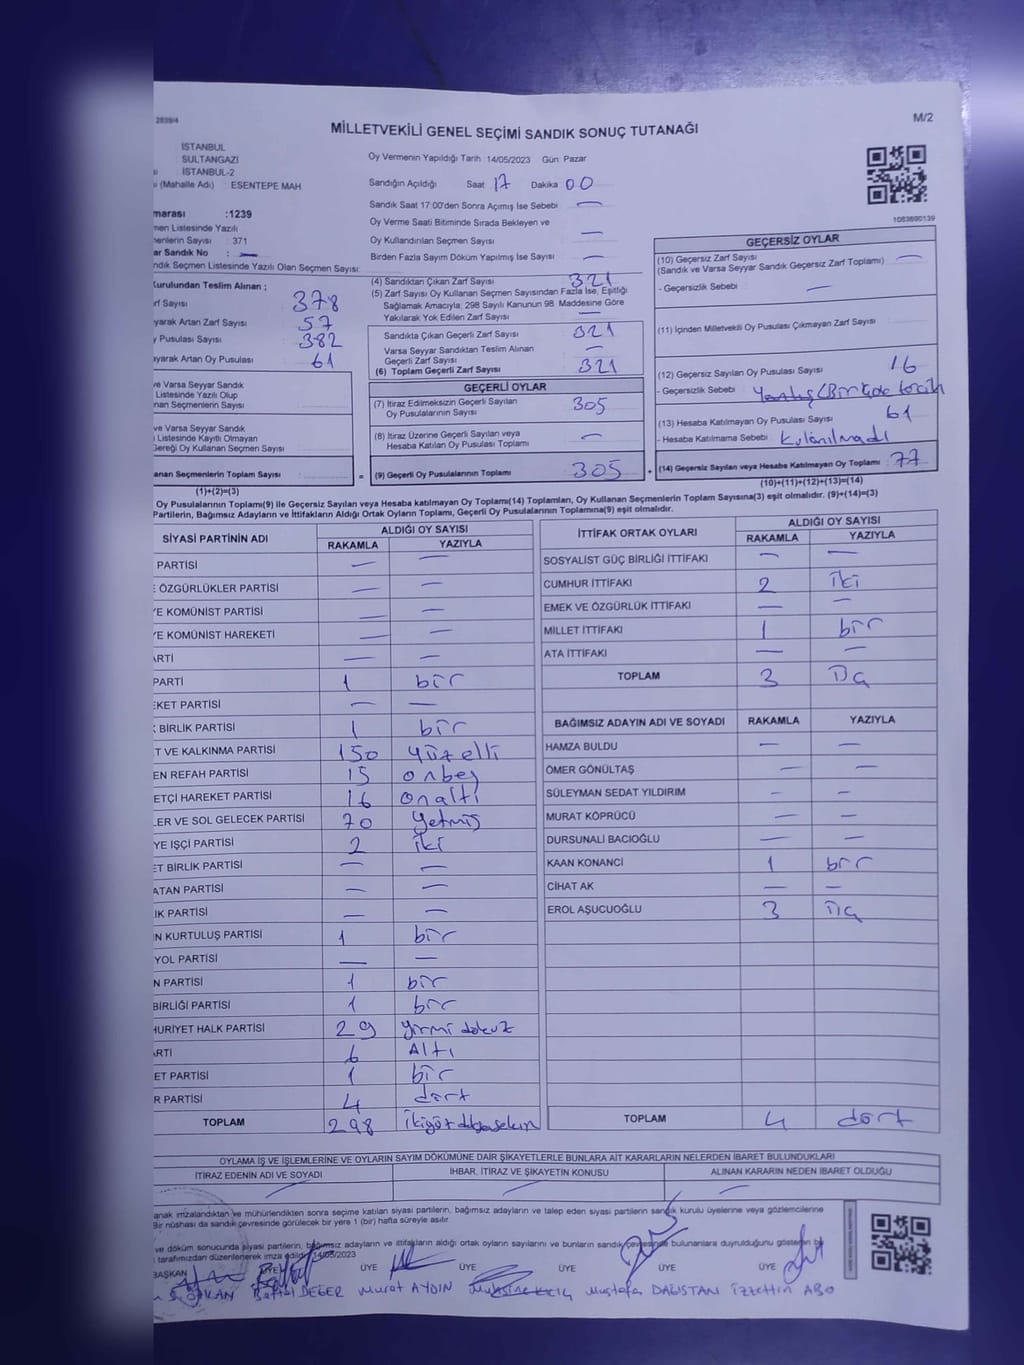 2839/4
MİLLETVEKİLİ GENEL SEÇİMİ SANDIK SONUÇ TUTANAĞI
M/2
İSTANBUL
SULTANGAZİ
İSTANBUL-2
(Mahalle Adı) : ESENTEPE MAH
Oy Vermenin Yapıldığı Tarih 14/05/2023 Gün Pazar
Sandığın Açıldığı Saat 17 Dakika 00
Sandık Saat 17:00'den Sonra Açımış İse Sebebi —
Oy Verme Saati Bitiminde Sırada Bekleyen ve
Oy Kullandırılan Seçmen Sayısı —
Birden Fazla Sayım Döküm Yapılmış İse Sayısı —
1083690139
marası :1239
men Listesinde Yazılı
menlerin Sayısı : 371
ar Sandık No : —
ndık Seçmen Listesinde Yazılı Olan Seçmen Sayısı:
Kurulundan Teslim Alınan ;
arf Sayısı 378
ayarak Artan Zarf Sayısı 57
y Pusulası Sayısı 382
ayarak Artan Oy Pusulası 61
ve Varsa Seyyar Sandık
Listesinde Yazılı Olup
nan Seçmenlerin Sayısı
ve Varsa Seyyar Sandık
Listesinde Kayıtlı Olmayan
Gereği Oy Kullanan Seçmen Sayısı
anan Seçmenlerin Toplam Sayısı :
(1)+(2)=(3)
(4) Sandıktan Çıkan Zarf Sayısı 321
(5) Zarf Sayısı Oy Kullanan Seçmen Sayısından Fazla İse, Eşitliği
Sağlamak Amacıyla; 298 Sayılı Kanunun 98. Maddesine Göre
Yakılarak Yok Edilen Zarf Sayısı —
Sandıkta Çıkan Geçerli Zarf Sayısı 321
Varsa Seyyar Sandıktan Teslim Alınan
Geçerli Zarf Sayısı —
(6) Toplam Geçerli Zarf Sayısı 321
GEÇERLİ OYLAR
(7) İtiraz Edilmeksizin Geçerli Sayılan
Oy Pusulalarının Sayısı 305
(8) İtiraz Üzerine Geçerli Sayılan veya
Hesaba Katılan Oy Pusulası Toplamı —
= (9) Geçerli Oy Pusulalarının Toplamı 305 +
GEÇERSİZ OYLAR
(10) Geçersiz Zarf Sayısı
(Sandık ve Varsa Seyyar Sandık Geçersiz Zarf Toplamı) —
- Geçersizlik Sebebi —
(11) İçinden Milletvekili Oy Pusulası Çıkmayan Zarf Sayısı
(12) Geçersiz Sayılan Oy Pusulası Sayısı 16
- Geçersizlik Sebebi
(13) Hesaba Katılmayan Oy Pusulası Sayısı 61
- Hesaba Katılmama Sebebi kulanılmadı
(14) Geçersiz Sayılan veya Hesaba Katılmayan Oy Toplamı : 77
(10)+(11)+(12)+(13)=(14)
Oy Pusulalarının Toplamı(9) ile Geçersiz Sayılan veya Hesaba katılmayan Oy Toplamı(14) Toplamları, Oy Kullanan Seçmenlerin Toplam Sayısına(3) eşit olmalıdır. (9)+(14)=(3)
Partilerin, Bağımsız Adayların ve İttifakların Aldığı Ortak Oyların Toplamı, Geçerli Oy Pusulalarının Toplamına(9) eşit olmalıdır.
SİYASİ PARTİNİN ADI ALDIĞI OY SAYISI
RAKAMLA YAZIYLA
PARTİSİ — —
ÖZGÜRLÜKLER PARTİSİ — —
YE KOMÜNİST PARTİSİ — —
YE KOMÜNİST HAREKETİ — —
ARTİ — —
PARTİ 1 bir
EKET PARTİSİ — —
K BİRLİK PARTİSİ 1 bir
T VE KALKINMA PARTİSİ 150 yüzelli
EN REFAH PARTİSİ 15 onbeş
ETÇİ HAREKET PARTİSİ 16 onaltı
LER VE SOL GELECEK PARTİSİ 70 yetmiş
YE İŞÇİ PARTİSİ 2 iki
ET BİRLİK PARTİSİ — —
ATAN PARTİSİ — —
İK PARTİSİ — —
IN KURTULUŞ PARTİSİ 1 bir
YOL PARTİSİ — —
N PARTİSİ 1 bir
BİRLİĞİ PARTİSİ 1 bir
HURİYET HALK PARTİSİ 29 yirmi dokuz
ARTİ 6 Altı
ET PARTİSİ 1 bir
R PARTİSİ 4 dört
TOPLAM 298
İTTİFAK ORTAK OYLARI ALDIĞI OY SAYISI
RAKAMLA YAZIYLA
SOSYALİST GÜÇ BİRLİĞİ İTTİFAKI — —
CUMHUR İTTİFAKI 2 iki
EMEK VE ÖZGÜRLÜK İTTİFAKI — —
MİLLET İTTİFAKI 1 bir
ATA İTTİFAKI — —
TOPLAM 3 üç
BAĞIMSIZ ADAYIN ADI VE SOYADI RAKAMLA YAZIYLA
HAMZA BULDU — —
ÖMER GÖNÜLTAŞ — —
SÜLEYMAN SEDAT YILDIRIM — —
MURAT KÖPRÜCÜ — —
DURSUNALİ BACIOĞLU — —
KAAN KONANCİ 1 bir
CİHAT AK — —
EROL AŞUCUOĞLU 3 üç
TOPLAM 4 dört
OYLAMA İŞ VE İŞLEMLERİNE VE OYLARIN SAYIM DÖKÜMÜNE DAİR ŞİKAYETLERLE BUNLARA AİT KARARLARIN NELERDEN İBARET BULUNDUKLARI
İTİRAZ EDENİN ADI VE SOYADI İHBAR, İTİRAZ VE ŞİKAYETİN KONUSU ALINAN KARARIN NEDEN İBARET OLDUĞU
— — —
anak imzalandıktan ve mühürlendikten sonra seçime katılan siyasi partilerin, bağımsız adayların ve talep eden siyasi partilerin sandık kurulu üyelerine veya gözlemcilerine
Bir nüshası da sandık çevresinde görülecek bir yere 1 (bir) hafta süreyle asılır.
ve döküm sonucunda siyasi partilerin, bağımsız adayların ve ittifakların aldığı ortak oyların sayılarını ve bunların sandık çevresinde bulunanlara duyrulduğunu gösteren bu
tarafımızdan düzenlenerek imza edildi. 14/05/2023
BAŞKAN ÜYE ÜYE ÜYE ÜYE ÜYE ÜYE
DEĞER Murat AYDIN Mustafa DAĞISTAN İzzettin ABO